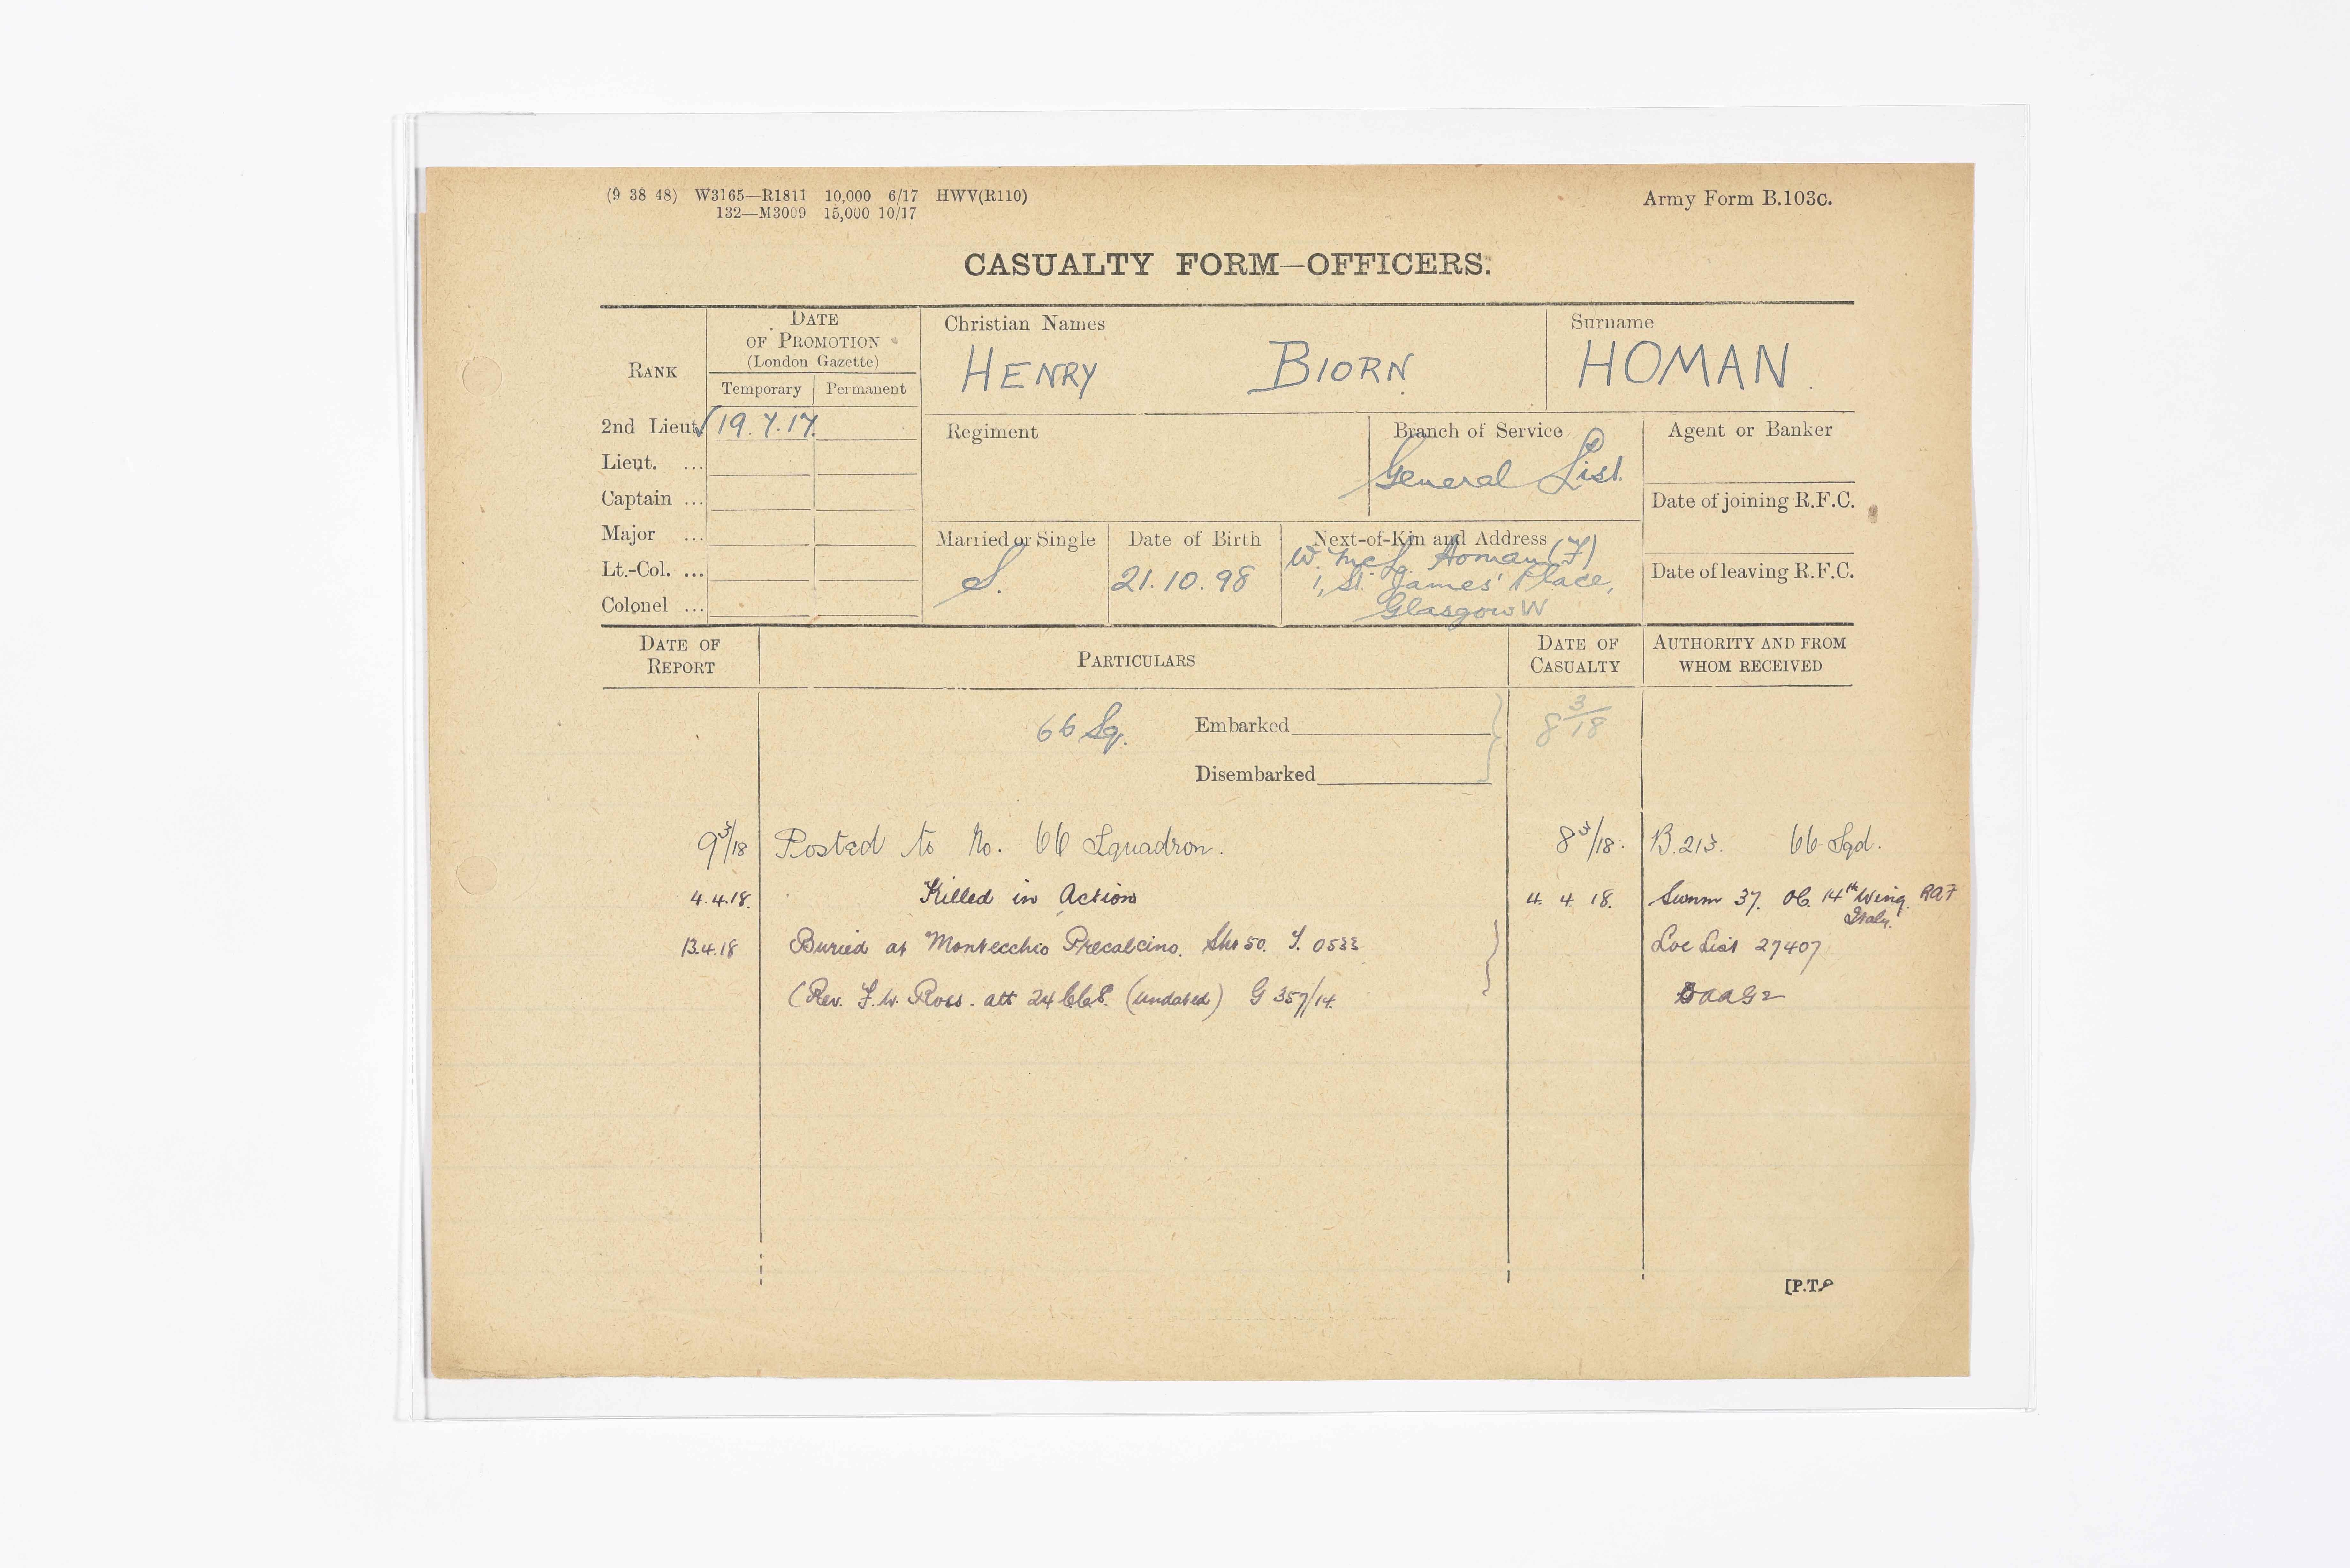 (9 38 48) W3165—R1811 10,000 6/17 HWV(R110)
132—M3009 15,000 10/17
Army Form B.103c.
CASUALTY FORM—OFFICERS.
RANK
DATE
OF PROMOTION
(London Gazette)
Temporary Permanent
Christian Names
HENRY BIORN
Surname
HOMAN
2nd Lieut. 19.7.17
Lieut. ...
Captain ...
Major ...
Lt.-Col. ...
Colonel ...
Regiment
Branch of Service
General List
Agent or Banker
Date of joining R.F.C.
Date of leaving R.F.C.
Married or Single
S.
Date of Birth
21.10.98
Next-of-Kin and Address
W. McL. Homan (F)
1, St. James' Place,
Glasgow W
DATE OF
REPORT
PARTICULARS
DATE OF
CASUALTY
AUTHORITY AND FROM
WHOM RECEIVED
66 Sq. Embarked 8 3/18
Disembarked
9 3/18 Posted to No. 66 Squadron. 8 3/18. B.213. 66 Sqd.
4.4.18. Killed in Action 4 4 18. Summ 37. OC. 14th Wing. RAF
Italy.
13.4.18 Buried at Montecchio Precalcino. Sht 50. Loc List 27407
(Rev. F. W. Ross. att 24 CCS. (undated) G 357/14.
[P.T.O